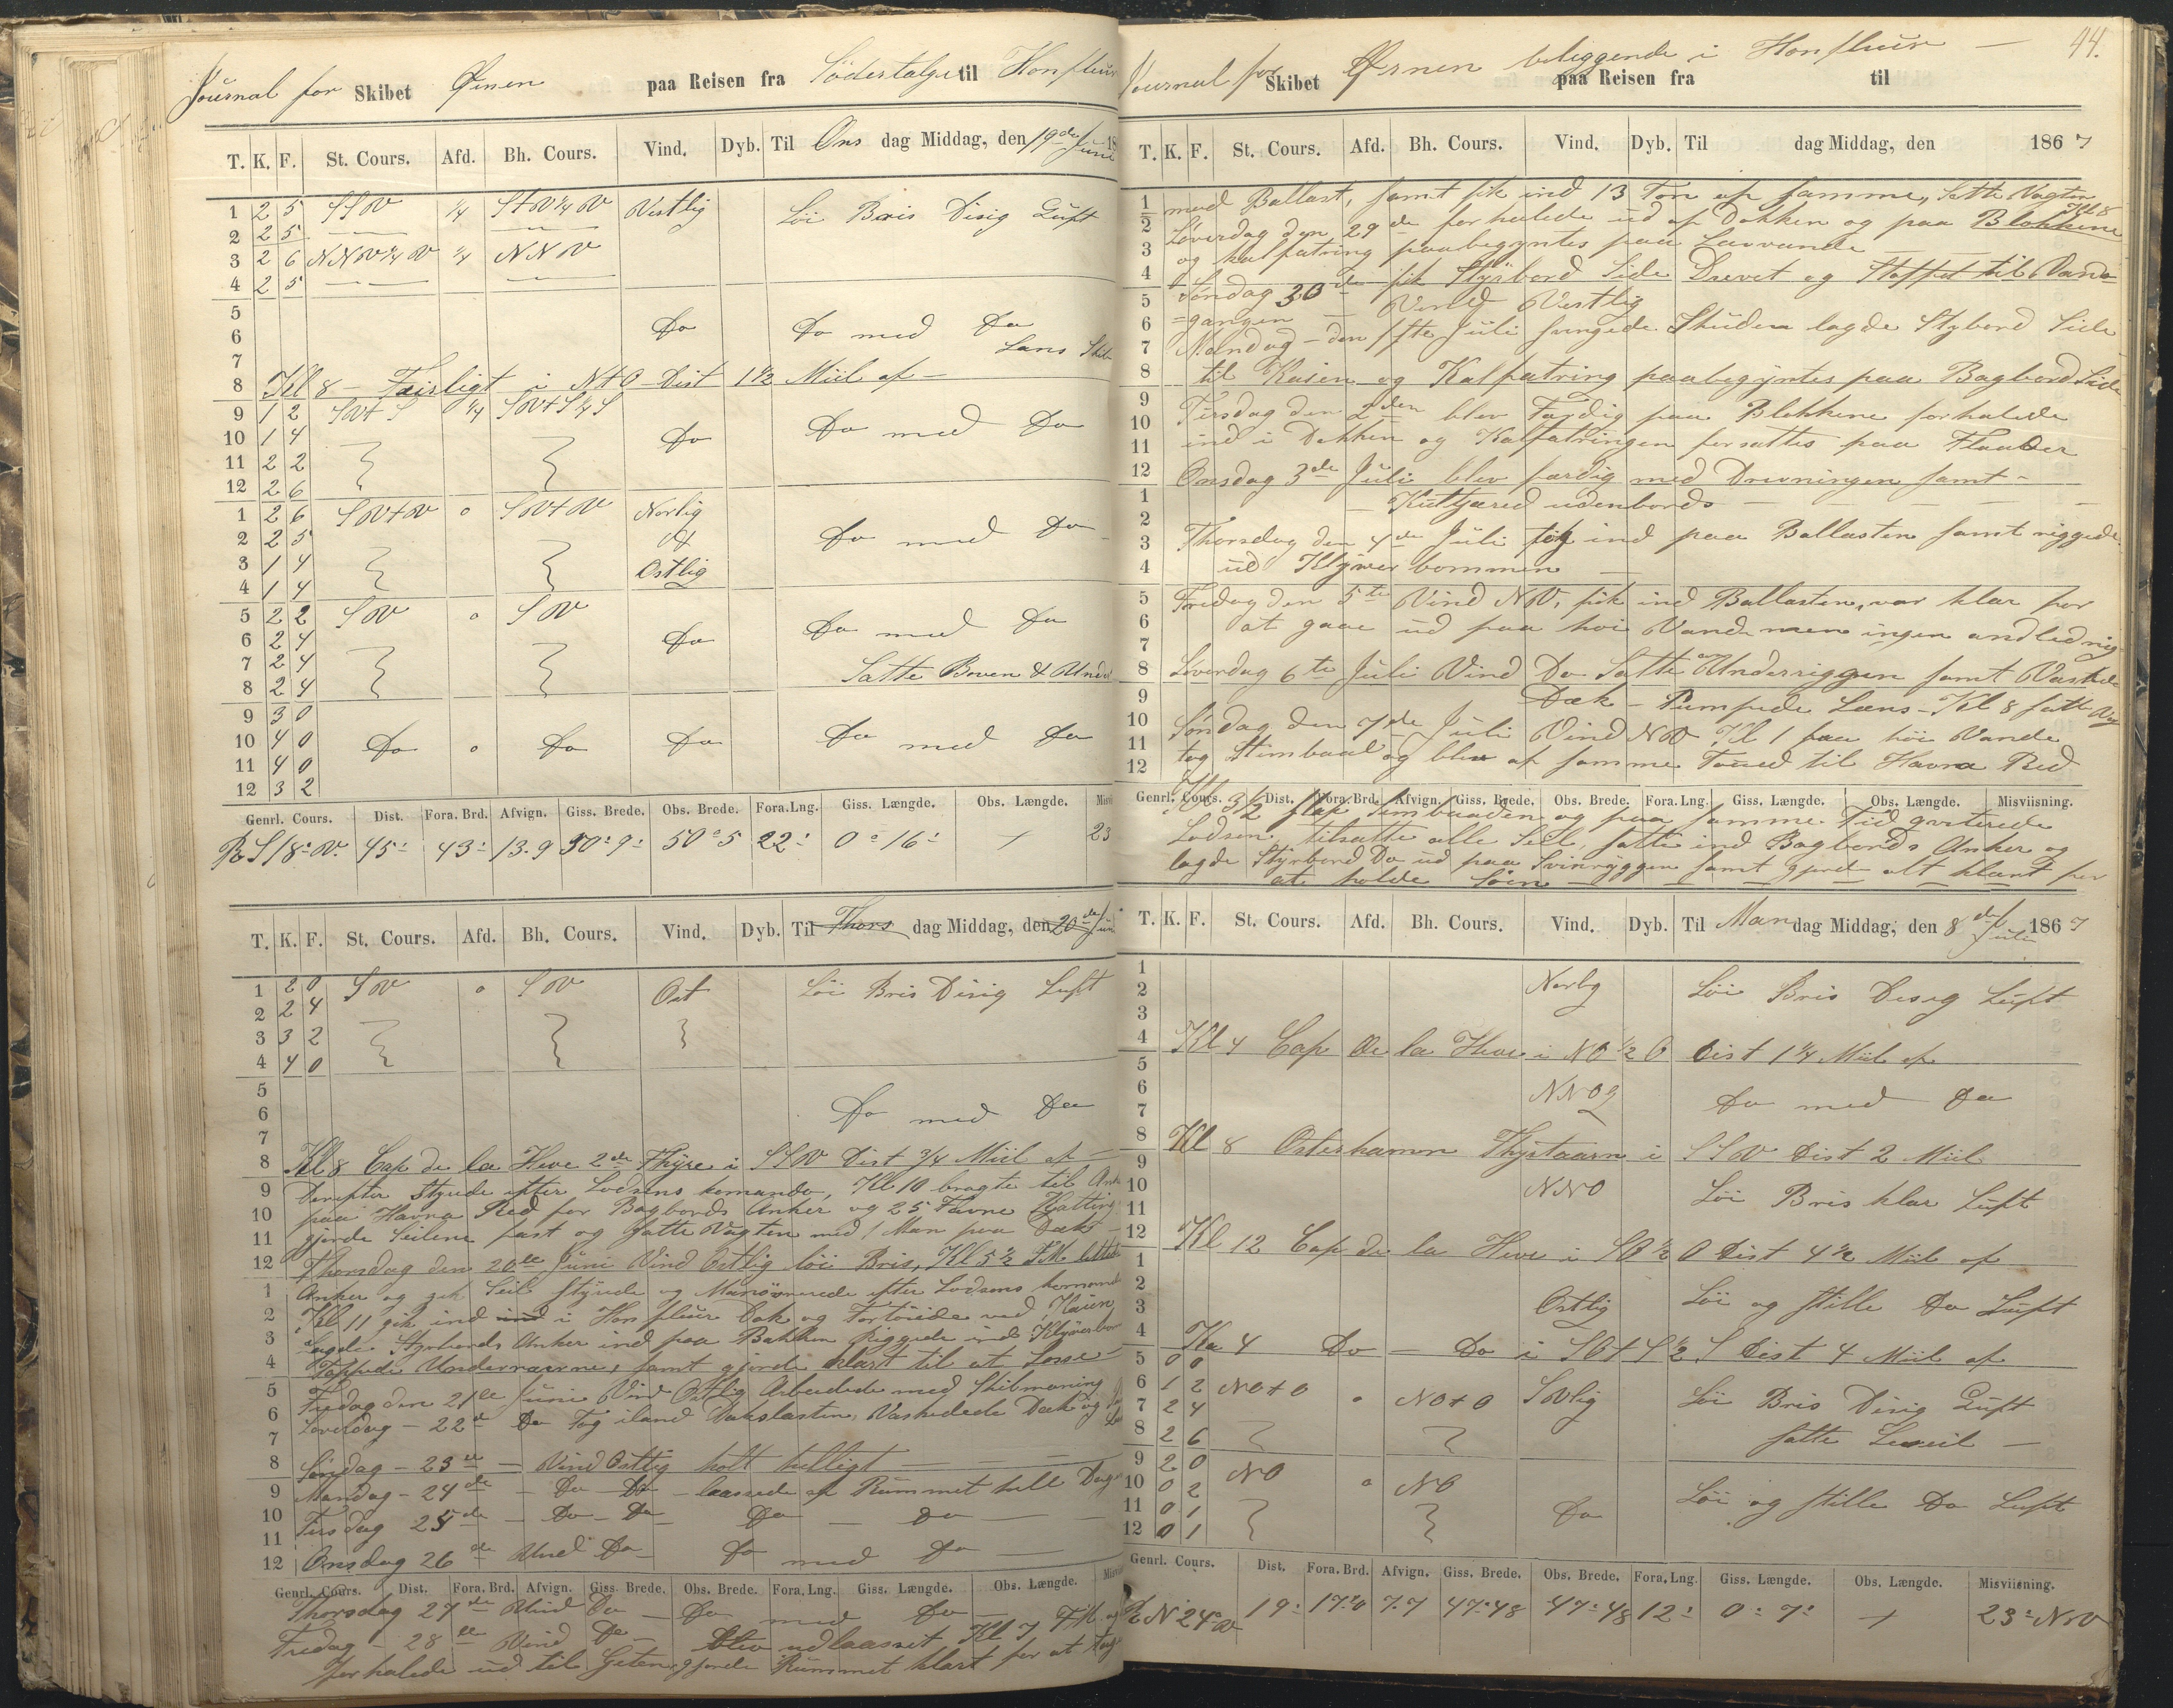 Journal for Skibet Ørnen paa Reisen fra Södertalge til Honfleur
T. K. F. St. Cours. Afd. Bh. Cours. Vind. Dyb. Til Ons dag Middag, den 19de Juni 18
1 2 5 SSW ¼ StW¼W Vestlig Löi Bris Disig Luft
2 2 5
3 2 6 NNW¼W ¼ NNW
4 2 5
5
6 Do Do med Do
7 Lans
8 Kl 8 i NtO Dist 1½ Miil af
9 1 2 SWtS ¼ SWtS¼S
10 1 4 Do Do med Do
11 2 2
12 2 6
1 2 6 SWtW 0 SWtW Norlig
2 2 5 & Do med Do
3 1 4 Ostlig
4 1 4
5 2 2 SW 0 SW
6 2 4 Do Do med Do
7 2 4 Satte Boven &
8 2 4
9 3 0
10 4 0 Do 0 Do Do Do med Do
11 4 0
12 3 2
Genrl. Cours. Dist. Fora. Brd. Afvign. Giss. Brede. Obs. Brede. Fora. Lng. Giss. Længde. Obs. Længde.
S18°W. 45' 43' 13.9 50°9' 50°5 22' 0°16' 23
T. K. F. St. Cours. Afd. Bh. Cours. Vind. Dyb. Til Thors dag Middag, den 20de Juni
1 2 0 SW 0 SW Ost Löi Bris Disig Luft
2 2 4
3 3 2
4 4 0
5
6 Do med Do
7
8 Kl 8 Cap de la Heve 2de Fhyre i SSW Dist ¾ Miil af
9 Derefter Styrede efter Lodsens komando, Kl 10 bragte til
10 paa Havna Red for Bagbords Anker og 25 Favne Kjatting
11 gjorde Seilene fast og satte Vagten med 1 Man paa Dæk
12 Thorsdag den 20de Juni Vind Ostlig löi Bris, Kl 5½ F.M. lettede
1 Anker og gik Seil Styrede og Manövrerede efter Lodsens
2 Kl 11 gik ind ind i Honfleur Dok og Fortöiede ved Kaien
3 lagde Styrbords Anker ind paa Bakken Riggede ind
4 Toppede Underraaerne, samt gjorde klart til at Losse
5 Fredag den 21de Juni Vind Ostlig Arbeidede med
6 Löverdag – 22de Do Tog iland Dækslasten, Vaskede Dæk og
7
8 Söndag – 23de – Vind Ostlig holt helligt
9 Mandag – 24de – Do Do – lossede af Rummet hele
10 Tirsdag 25de – Do – Do Do – Do
11
12 Onsdag 26de Vind Do Do med Do
Genrl. Cours. Dist. Fora. Brd. Afvign. Giss. Brede. Obs. Brede. Fora. Lng. Giss. Længde. Obs. Længde.
Thorsdag 27de Vind Do – Do med Do
Fredag – 28de Vind Do – blev udlosset Kl 7
forhalede ud til gjorde Rummet klart for at
44.
Journal for Skibet Ørnen beliggende i Honfleur
paa Reisen fra til
T. K. F. St. Cours. Afd. Bh. Cours. Vind. Dyb. Til dag Middag, den 1867
med Ballast, samt fik ind 13 Ton af samme, Satte Vagten Kl 8
Löverdag den 29de forhalede ud af Dokken og paa Blokkene
og kalfatring paabegyntes paa Lavvande
Söndag 30de fik Styrbord Side Drevet og til Vand=
=gangen – Vind Vestlig
Mandag – den 1ste Juli Skuden lagde Stybord Side
til Kaien og Kalfatring paabegyntes paa Bagbord Side
Tirsdag den 2den blev Færdig paa Blokkene forhalede
ind i Dokken og Kalfatringen forsattes paa
Onsdag 3de Juli blev færdig med Drevningen samt –
udenbords
Thorsdag den 4de Juli ind paa Ballasten samt riggede
ud Klyverbommen
Fredag den 5te Vind NW, fik ind Ballasten, var klar for
at gaae ud paa höi Vande men ingen
Löverdag 6te Juli Vind Do Satte Underriggen samt Vaskede
Dæk – Pumpede Læns – Kl 8 satte
Söndag den 7de Juli Vind NW Kl 1 paa höi Vande
tog Stimbaad og blev af samme Toued til Havna Red
Genrl. Cours. Dist. Fora. Brd. Afvign. Giss. Brede. Obs. Brede. Fora. Lng. Giss. Længde. Obs. Længde. Misviisning.
Kl 3½ Stimbaaden og paa samme Tid qviterede
Lodsen, tilsatte alle Seil, satte ind Bagbords Anker og
lagde Styrbord Do ud paa Svinryggen samt gjord alt klart for
at holde Söen
T. K. F. St. Cours. Afd. Bh. Cours. Vind. Dyb. Til Man dag Middag, den 8de Juli 1867
1
2 Norlig Löi Bris Disig Luft
3
4 Kl 4 Cap de la Heve i NO½O Dist 1¼ Miil af
5
6
7 NNO Do med Do
8 Kl 8 i SSW Dist 2 Miil
9
10 NNO Löi Bris klar Luft
11
12 Kl 12 Cap de la Heve i SO½O Dist 4½ Miil af
1
2
3 Ostlig Löi og stille Do Luft
4 4 Do – Do i SOtS½S Dist 4 Miil af
5 0 0
6 1 2 NOtO 0 NOtO SWlig Löi Bris Disig Luft
7 2 4
8 2 6 satte Leseil
9 2 0
10 0 2 NO 0 NO Löi og stille Do Luft
11 0 1 Do
12 0 1
Genrl. Cours. Dist. Fora. Brd. Afvign. Giss. Brede. Obs. Brede. Fora. Lng. Giss. Længde. Obs. Længde. Misviisning.
N 24°W 19' 17'0 7.7 47'48 47'48 12' 0°7' 23°NW